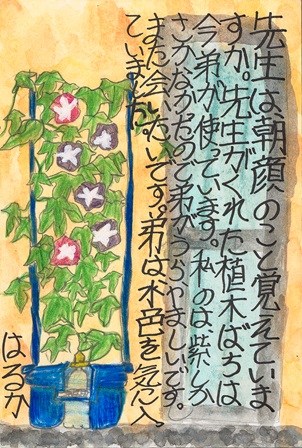 先生は朝顔のこと覚えていま
すか。先生がくれた植木ばちは
今弟が使っています。私のは紫しか
さかなかったので弟がうらやましいです。
また会いたいです。弟は水色を気に入っ
ていました。
はるか